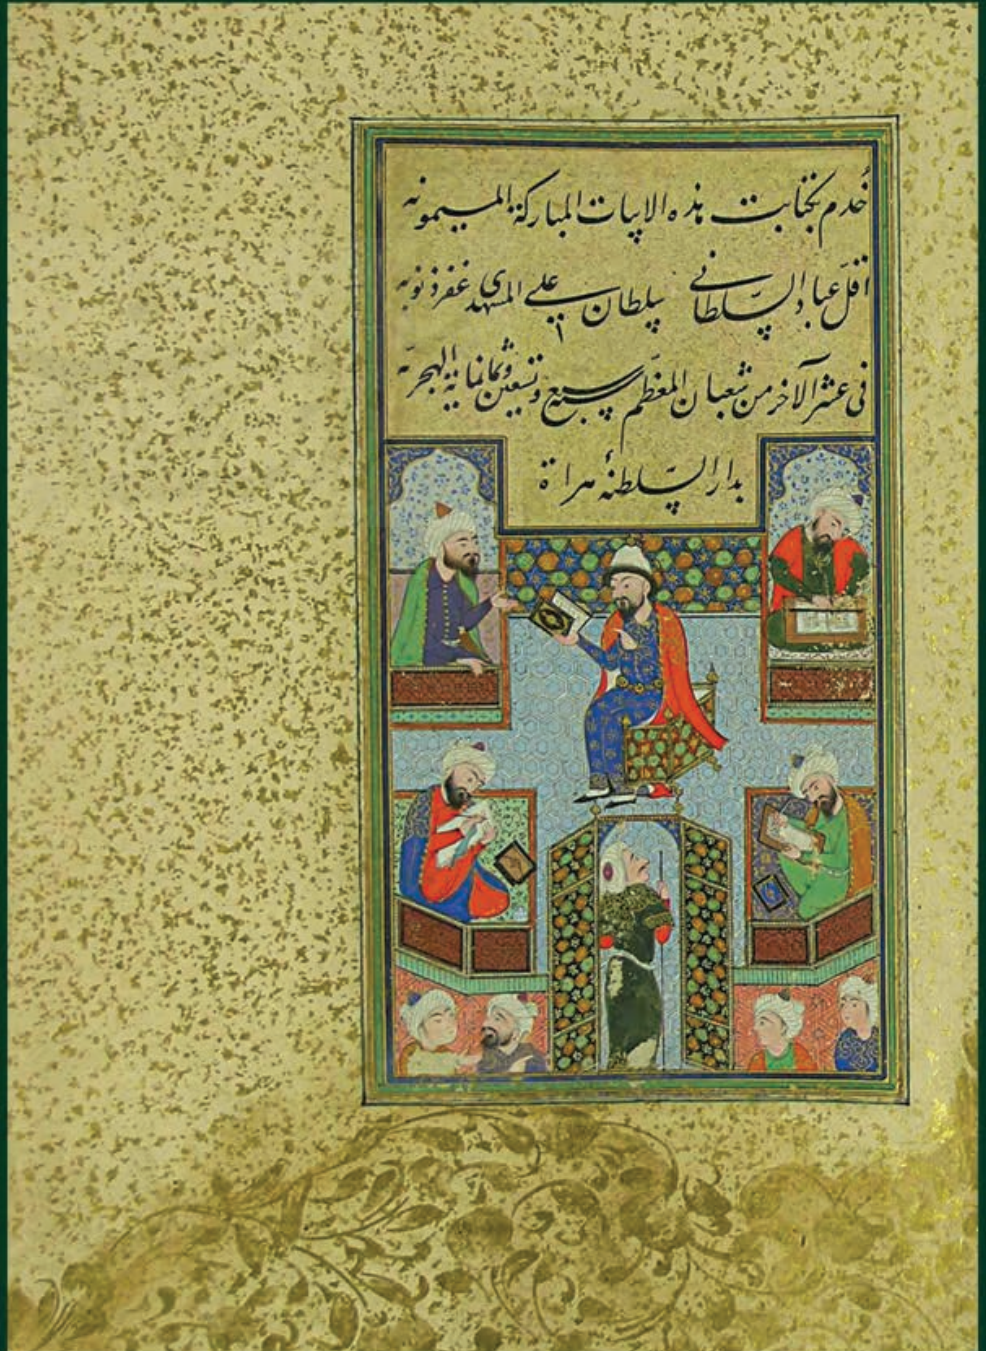 خُدم بکتابت هذه الابیات المبارکة المیمونه
اقلّ عباد السّلطانی سلطان علی المشهدی غفر ذنوبه
فی عشر الآخر من شعبان المعظّم سبع وتسعین وثمانمایة الهجریّه
بدار السّلطنهٔ هراة